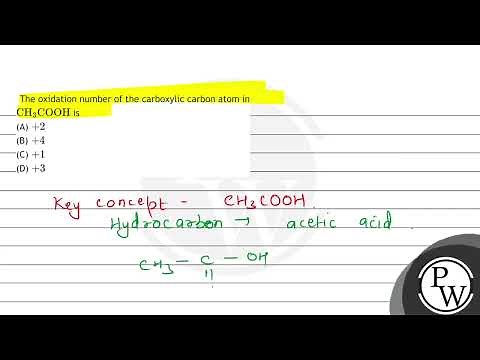 The oxidation number of the carboxylic carbon atom in
CH₃COOH is
(A) +2
(B) +4
(C) +1
(D) +3
Key concept - CH₃COOH.
Hydrocarbon → acetic acid.
CH₃ - C - OH
||
P
W